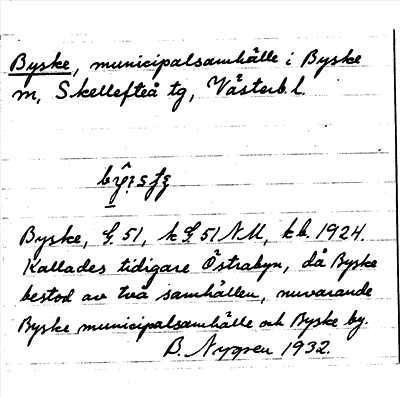 Byske, municipalsamhälle i Byske
m, Skellefteå tg, Västerb. l.
Byske, G. 51, k G 51 NU, kb. 1924.
Kallades tidigare Östrabyn, då Byske
bestod av två samhällen, nuvarande
Byske municipalsamhälle och Byske by.
B. Nygren 1932.